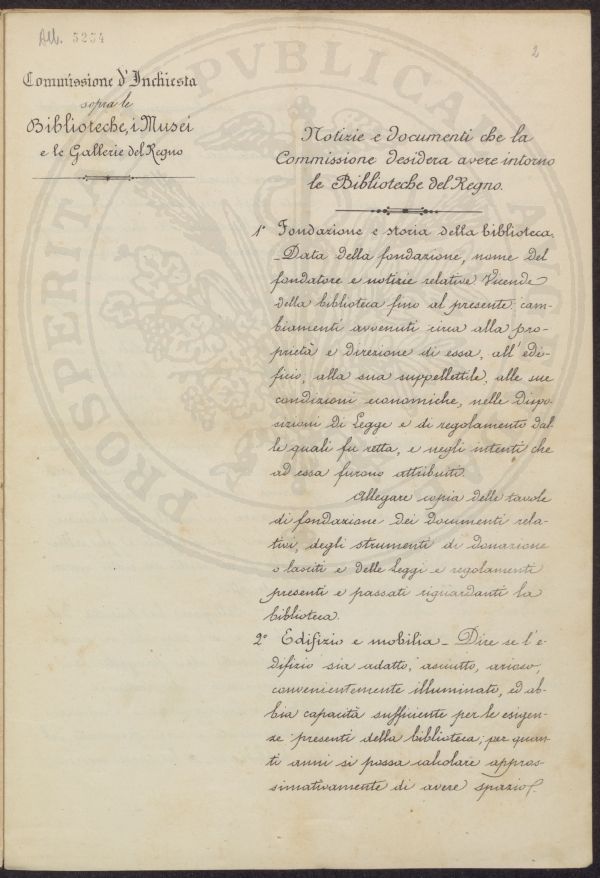 All. 5254
2
Commissione d'Inchiesta
sopra le
Biblioteche, i Musei
e le Gallerie del Regno
Notizie e documenti che la
Commissione desidera avere intorno
le Biblioteche del Regno.
1° Fondazione e storia della biblioteca.
_Data della fondazione, nome del
fondatore e notizie relative Vicende
della biblioteca fino al presente: cam-
biamenti avvenuti circa alla pro-
prietà e direzione di essa, all'edi-
ficio, alla sua suppellettile, alle sue
condizioni economiche, nelle dispo-
sizioni di Legge e di regolamento dal-
le quali fu retta, e negli intenti che
ad essa furono attribuiti.
Allegare copia delle tavole
di fondazione dei documenti rela-
tivi, degli strumenti di donazione
o lasciti e delle Leggi e regolamenti
presenti e passati riguardanti la
biblioteca.
2° Edifizio e mobilia _ Dire se l'e-
difizio sia adatto, asciutto, arioso,
convenientemente illuminato, ed ab-
bia capacità sufficiente per le esigen-
ze presenti della biblioteca; per quan-
ti anni si possa calcolare appros-
simativamente di avere spazio
PROSPERITÀ PVBLICAE